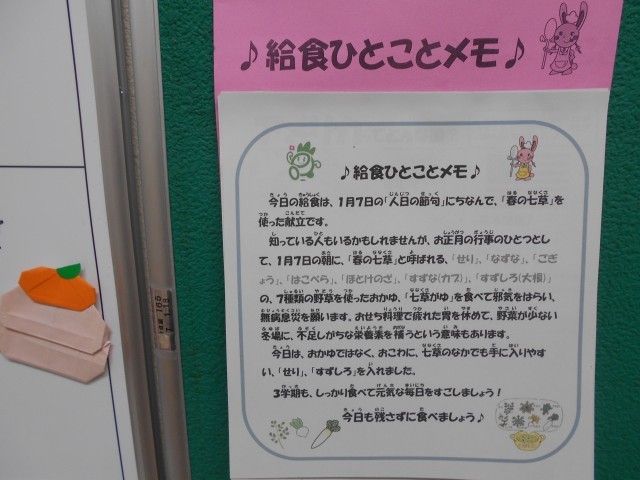 ♪給食ひとことメモ♪
♪給食ひとことメモ♪
今日の給食は、1月7日の「人日の節句」にちなんで、「春の七草」を
使った献立です。
知っている人もいるかもしれませんが、お正月の行事のひとつとし
て、1月7日の朝に、「春の七草」と呼ばれる、「せり」、「なずな」、「ごぎ
ょう」、「はこべら」、「ほとけのざ」、「すずな(カブ)」、「すずしろ(大根)」
の、7種類の野草を使ったおかゆ、「七草がゆ」を食べて邪気をはらい、
無病息災を願います。おせち料理で疲れた胃を休めて、野菜が少ない
冬場に、不足しがちな栄養素を補うという意味もあります。
今日は、おかゆではなく、おこわに、七草のなかでも手に入りやす
い、「せり」、「すずしろ」を入れました。
3学期も、しっかり食べて元気な毎日をすごしましょう!
今日も残さずに食べましょう♪